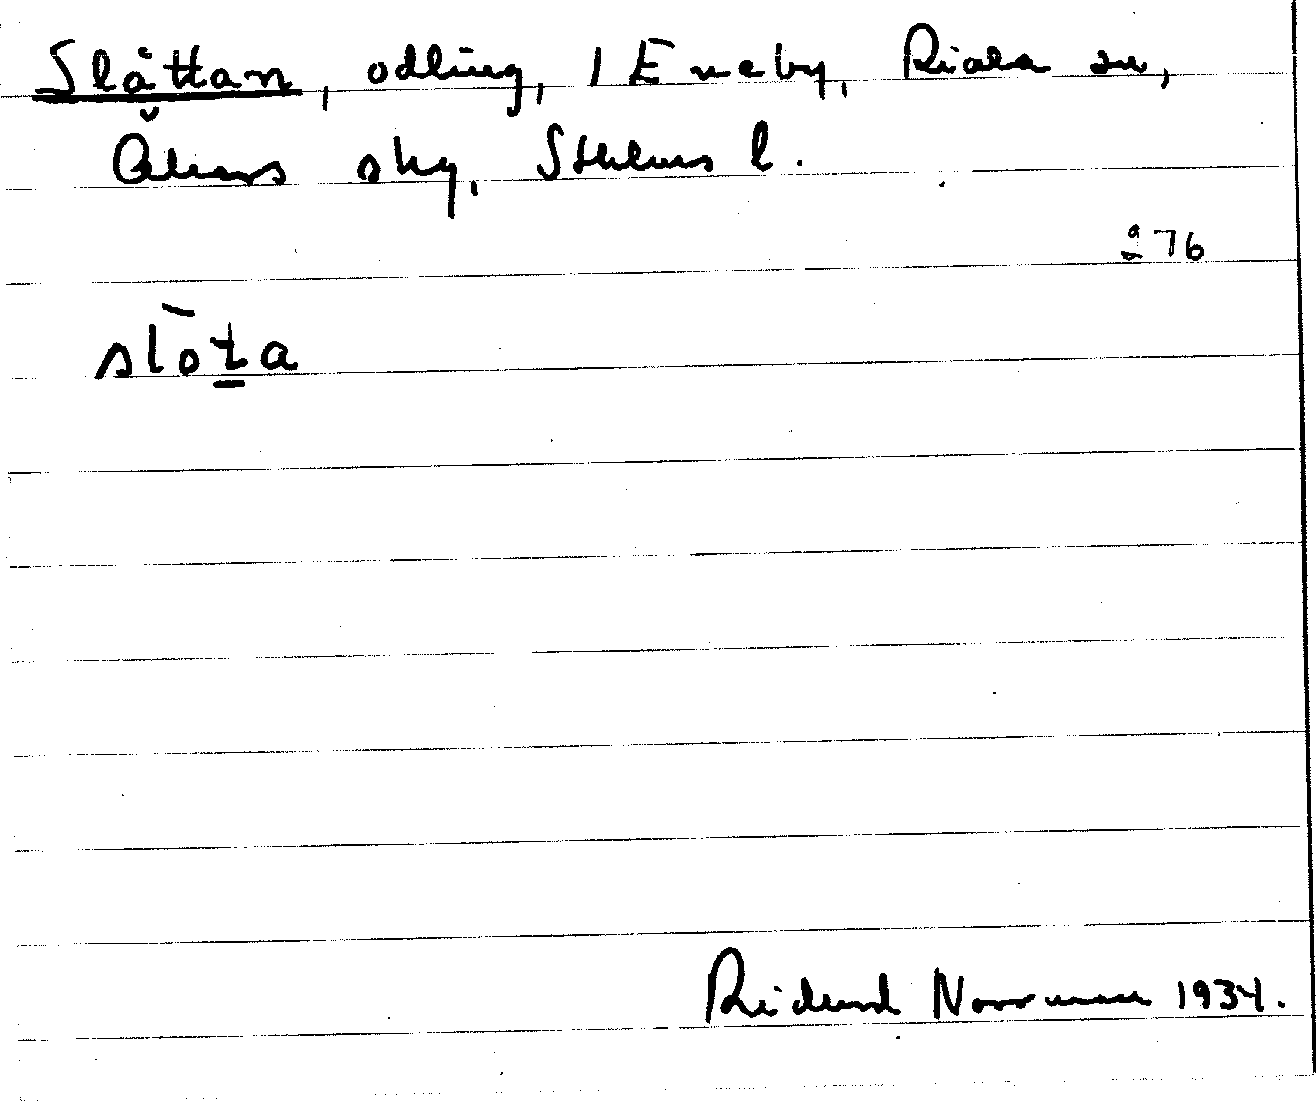 Slåttan, odling, 1 Eneby, Riala sn,
Åkers sky, Sthlms l.
276
slōṯa
Rolund Norrman 1934.